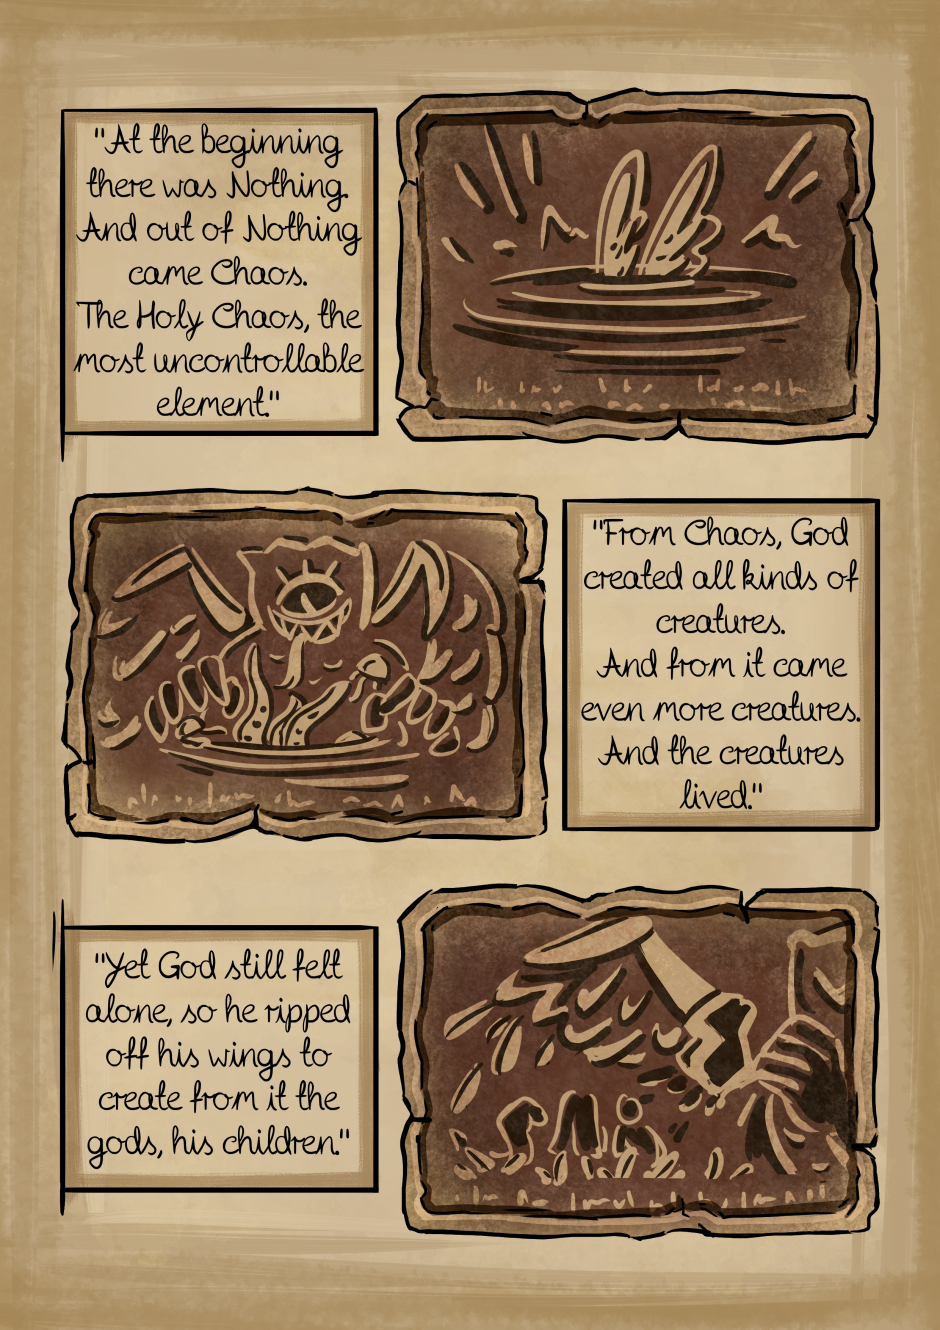 "At the beginning
there was Nothing.
And out of Nothing
came Chaos.
The Holy Chaos, the
most uncontrollable
element."
"From Chaos, God
created all kinds of
creatures.
And from it came
even more creatures.
And the creatures
lived."
"Yet God still felt
alone, so he ripped
off his wings to
create from it the
gods, his children."